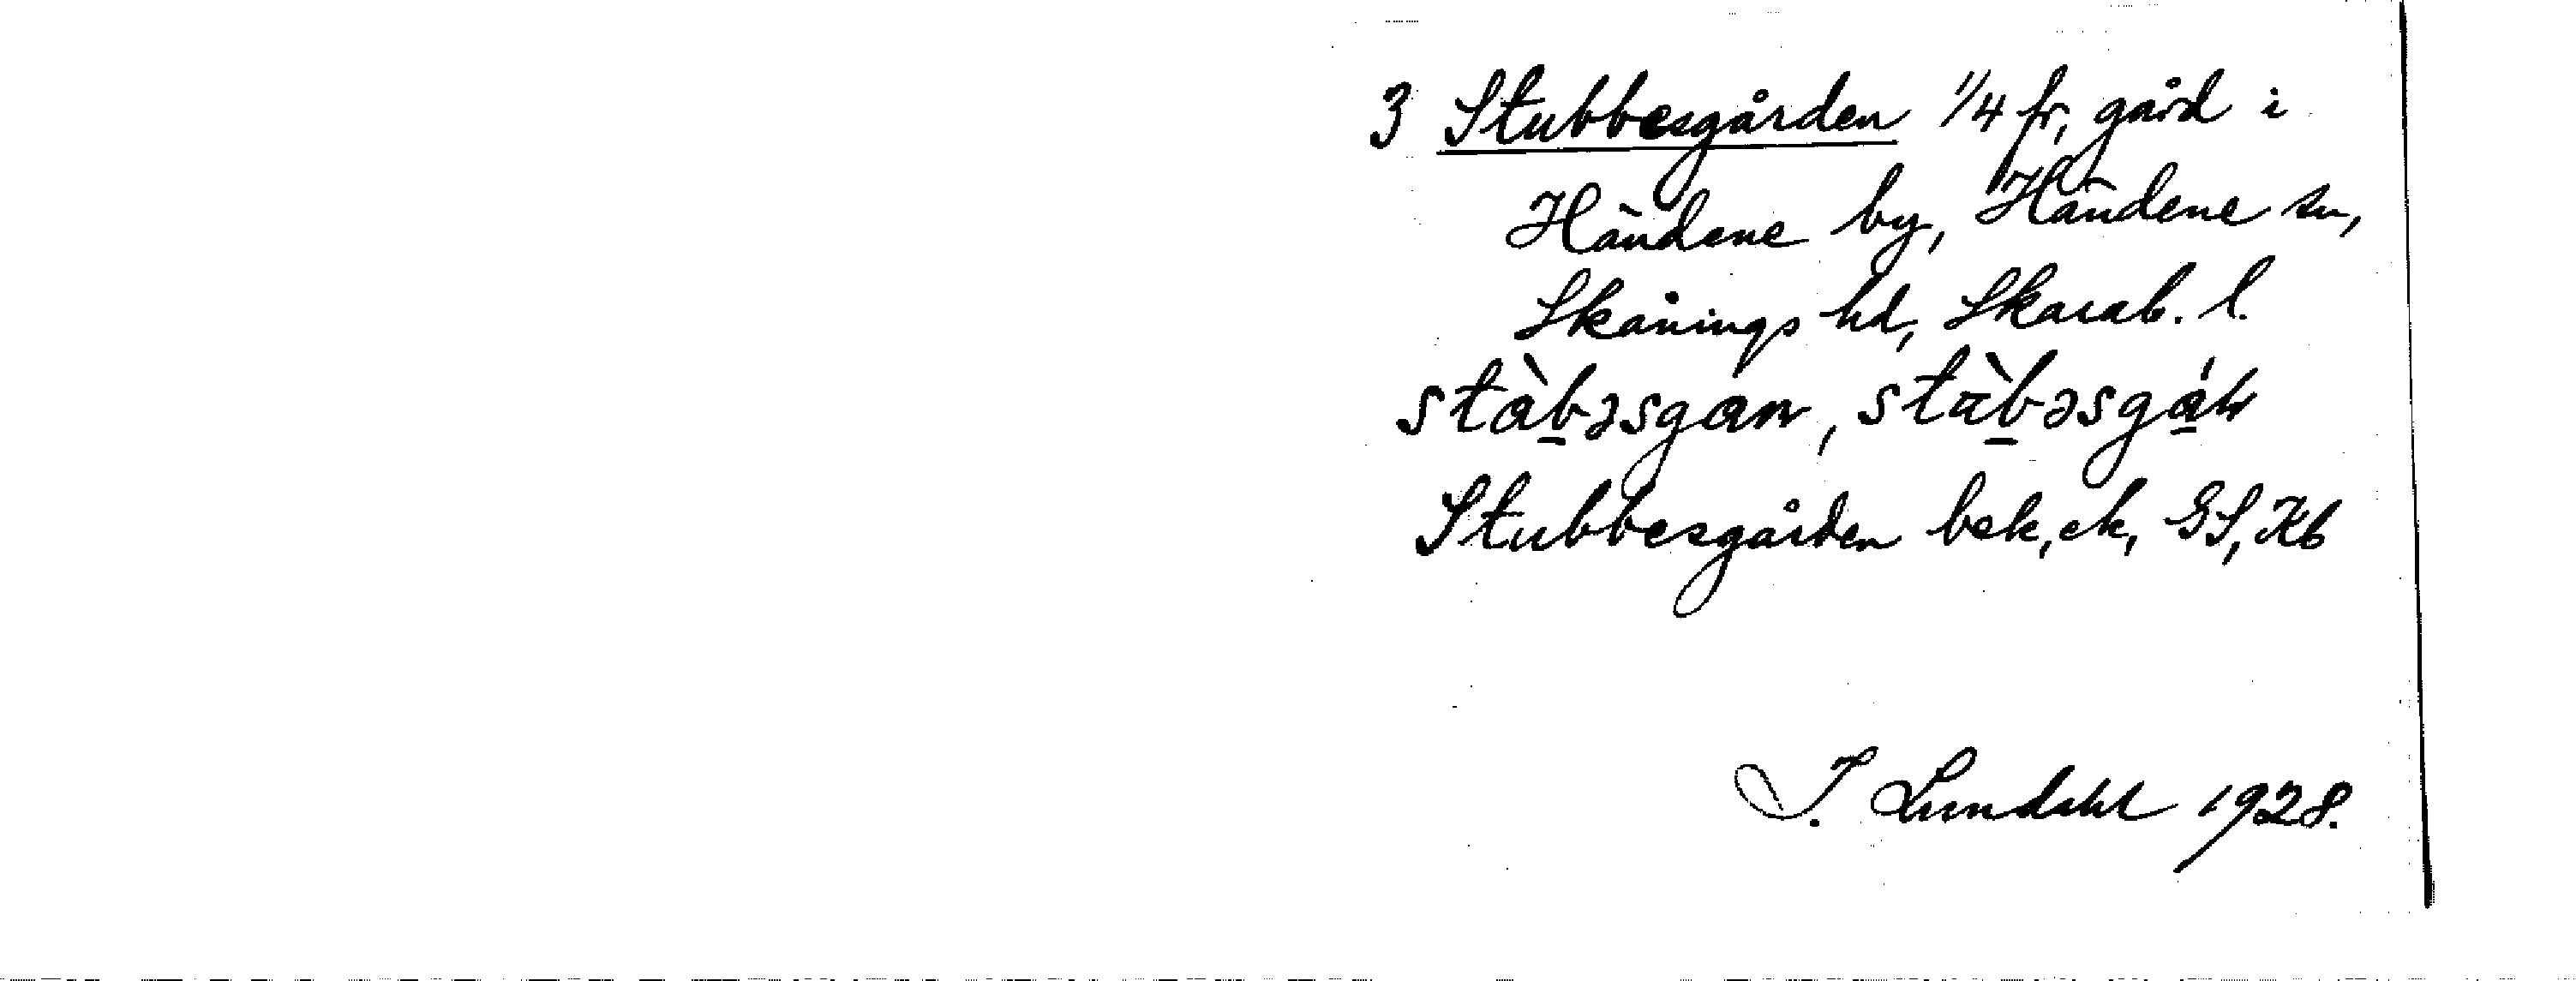 3 Stubbesgården 1/4 fr, gård i
Händene by, Händene sn,
Skånings hd, Skarab. l.
stàbəsgan, stàbəsgán
Stubbesgården bek, ek, GS, Kb
I. Lundahl 1928.